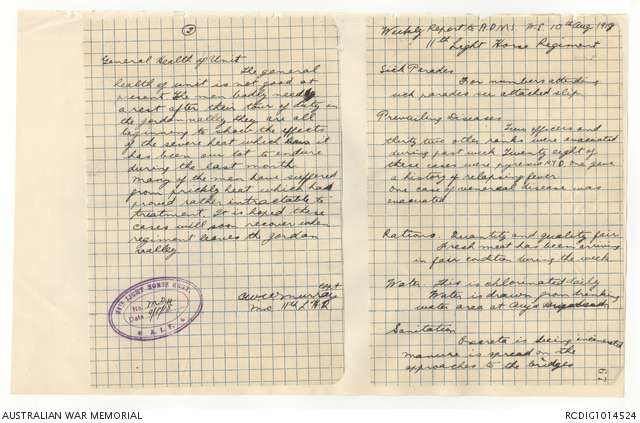 (2)
General Health of Unit
The general
health of unit is not good at
present. The men badly need
a rest after their tour of duty in
the Jordan Valley they are all
beginning to show the effects
of the severe heat which it
has been our lot to endure
during the last month
Many of the men have suffered
from prickly heat which has
proved rather intractable to
treatment. It is hoped these
cases will soon recover when
regiment leaves the Jordan
Valley
Capt
Murray
M.O. 11th L.H.R
11TH LIGHT HORSE REGT.
No.
Date
A.I.F.
Weekly Report to A.D.M.S W.E. 10th Aug 1918
11th Light Horse Regiment
Sick Parades
For numbers attending
sick parades see attached slip
Prevailing Diseases
Four officers and
thirty two other ranks were evacuated
during past week Twenty eight of
these cases were pyrexia N.Y.D. One gave
a history of relapsing fever
One case of venereal disease was
evacuated
Rations. Quantity and quality fair
Fresh meat has been arriving
in fair condition during the week
Water. This is chlorinated daily
Water is drawn from drinking
water area at
Sanitation
Excreta is being incinerated
manure is spread on the
approaches to the bridges
AUSTRALIAN WAR MEMORIAL
RCDIG1014524